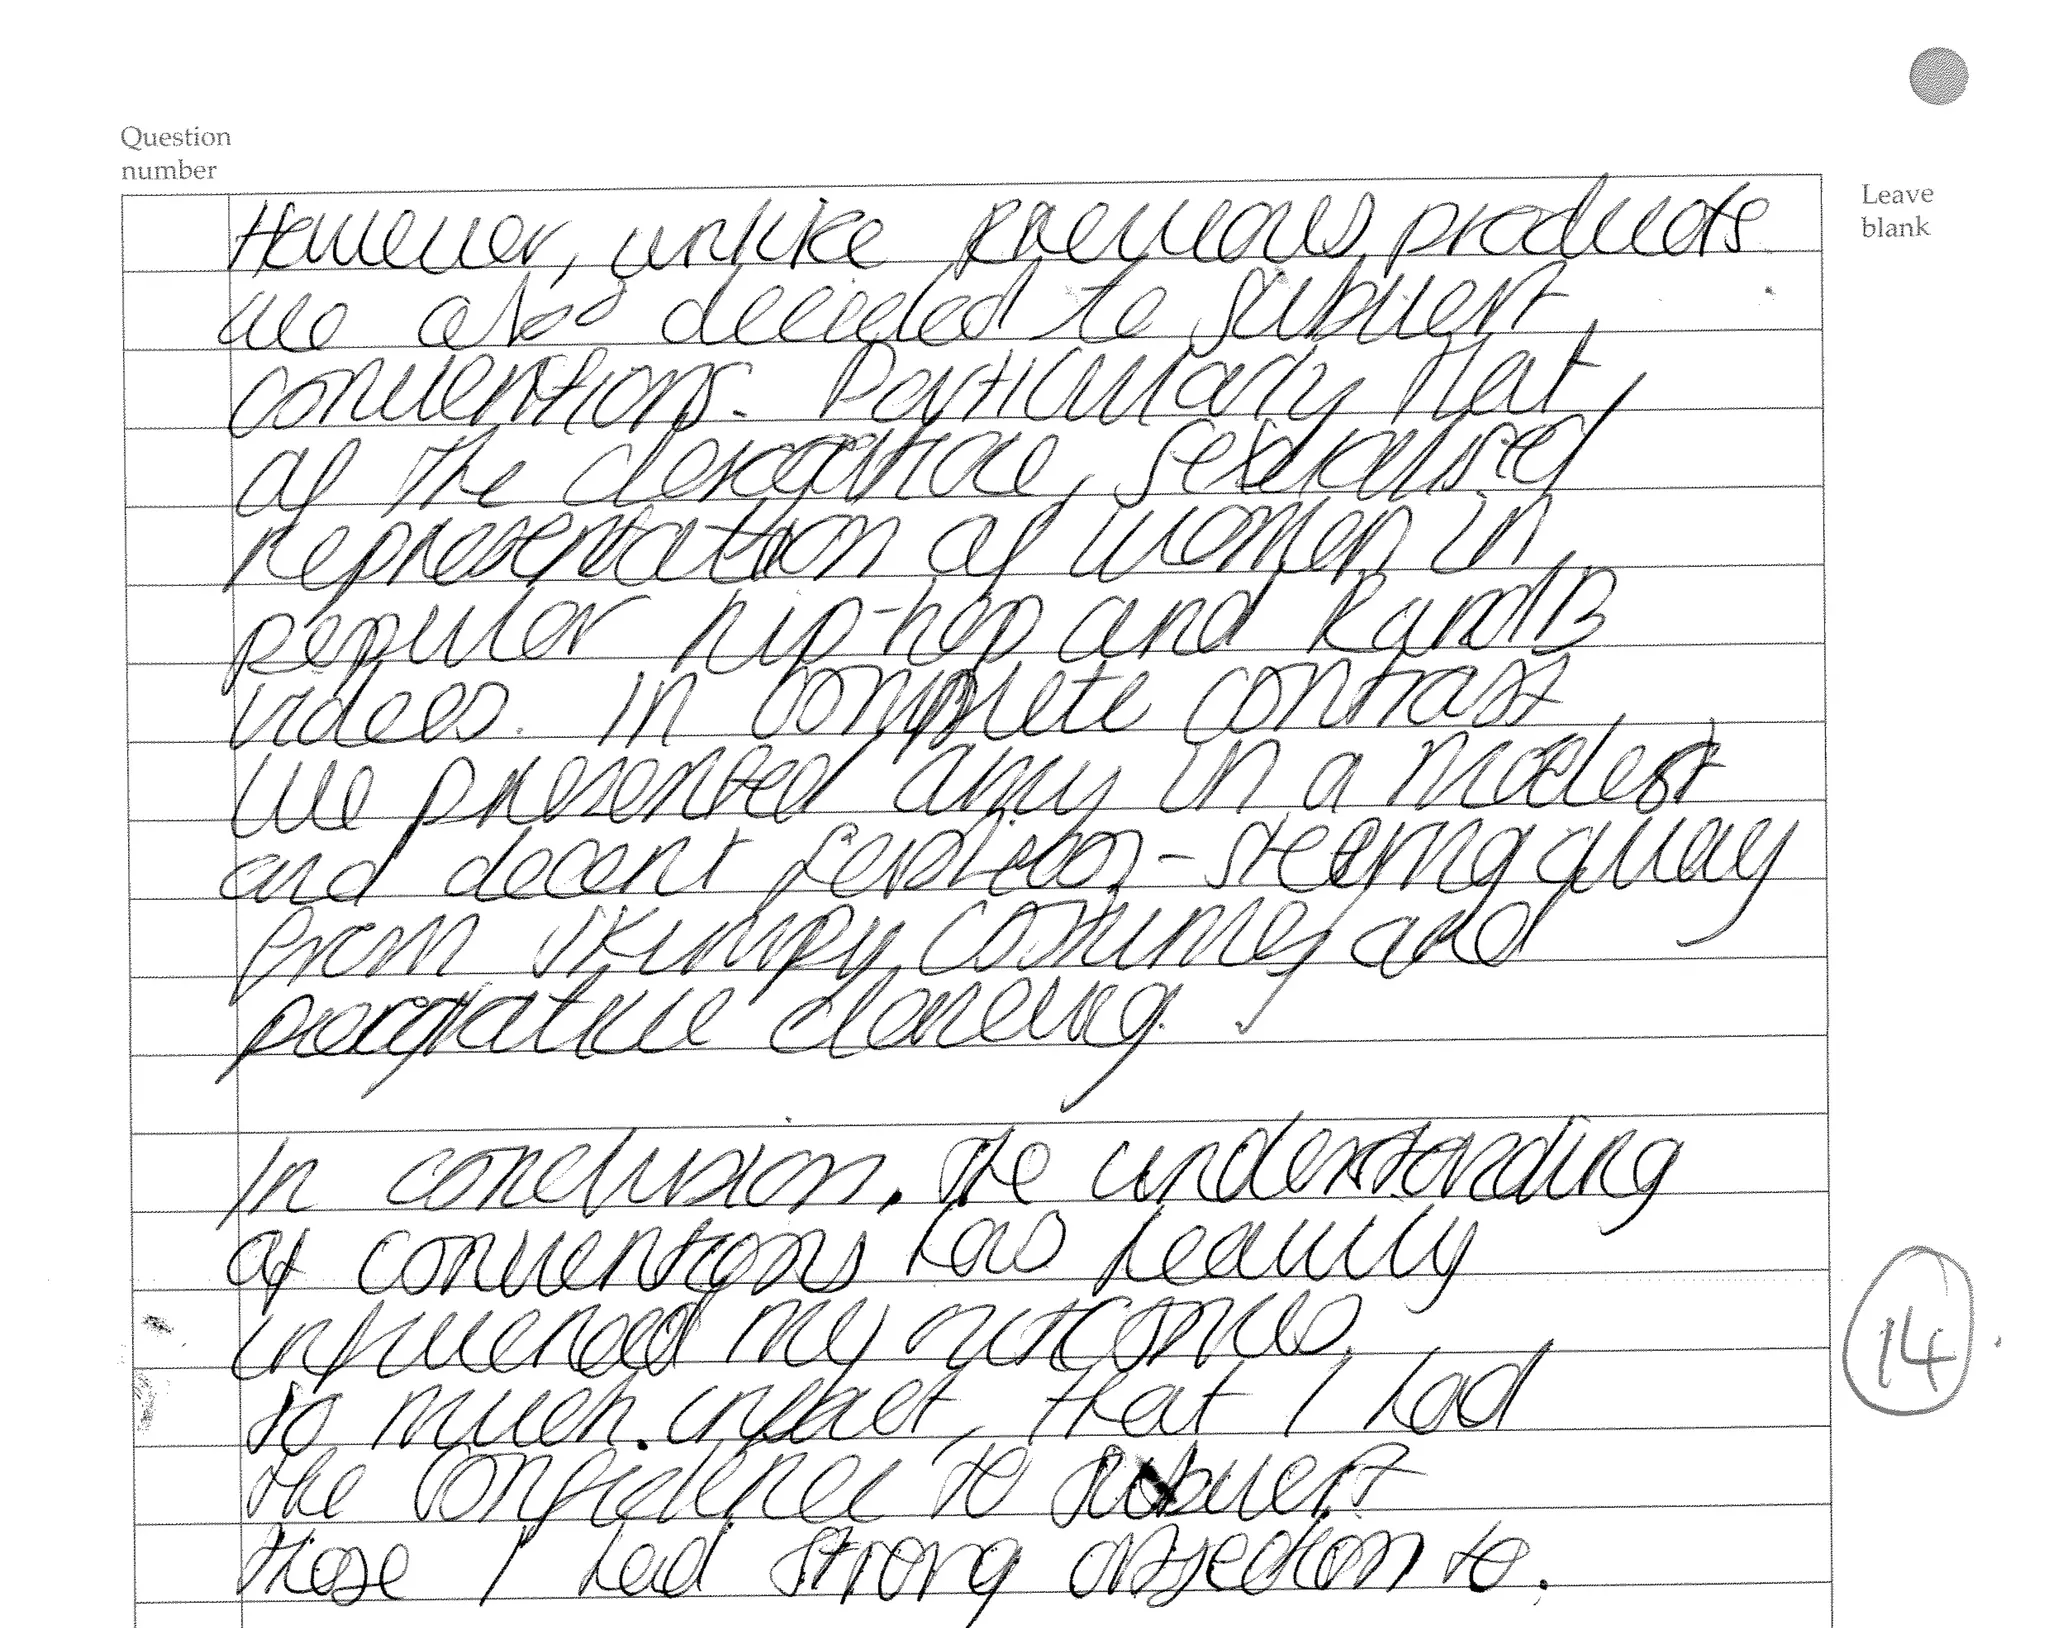 Question
number
Leave
blank
However, unlike previous products
we also decided to subvert
conventions. Particularly that
of the derogative, sexualised
representation of women in
popular hip-hop and RandB
videos. In complete contrast
we presented amy in a modest
and decent fashion - steering away
from skimpy costumes and
derogative dancing.
In conclusion, the understanding
of conventions has heavily
influenced my outcomes.
So much infact, that I had
the confidence to subvert
those I had strong objection to.
14